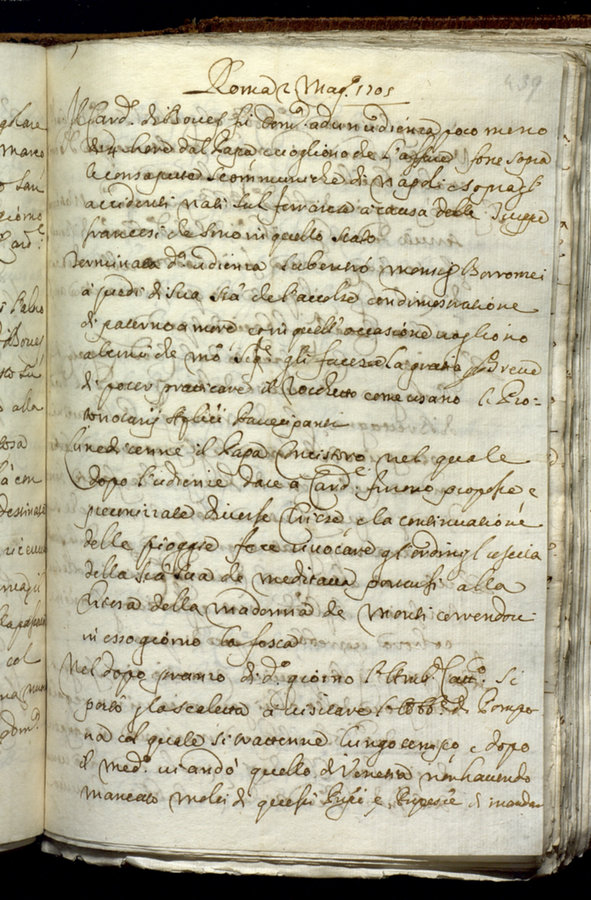 439
Roma 2 Magg.º 1705
Il Card. di hebbe dom.ª ad un'udienza poco meno
di 4 hore dal Papa e vogliono che fosse sopra
le consapute scommuniche di Napoli e sopra gl'
accidenti nati sul ferrarese a causa delle Truppe
francesi che sono in quello Stato
Terminata d.ª udienza subentrò Monsig. Borromei
a piedi di Sua S.tà che l'accolse con dimostratione
di paterno amore con quell'occasione vogliono
alcuni che gli facesse la gratia Breve
di poter pratticare il Rocchetto come usano l. Pro-
tonotarij Ap.lici Partecipanti
Lunedì tenne il Papa Concistoro nel quale
dopo l'udienze date a Card.i furono proposte e
preconizate diverse Chiese, e la continuatione
delle pioggie fece rivocare gl'ordini
della S.tà Sua che meditava portarsi alla
Chiesa della Madonna de Monti correndovi
in esso giorno la festa
Nel dopo pranzo di d.º giorno l'Amb.r Ces.º si
portò p la scaletta à visitare di Pompo
na col quale si trattenne lungo tempo e dopo
il med.º vi andò quello di Venetia non havendo
mancato molti di questi e di mandar